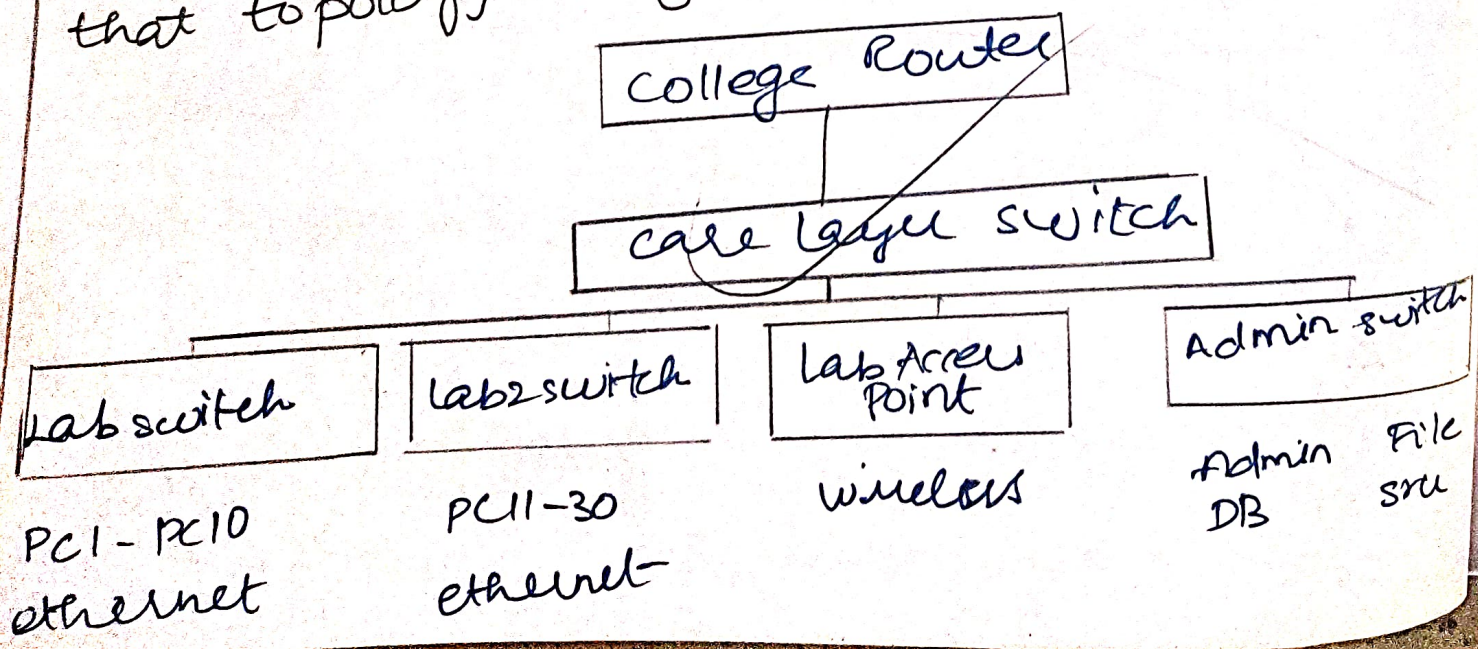 that topology
College Router
Core Layer Switch
Lab switch
Lab2switch
Lab Access
Point
Admin switch
PC1 - PC10
ethernet
PC11-30
ethernet
wireless
Admin
DB
File
srv